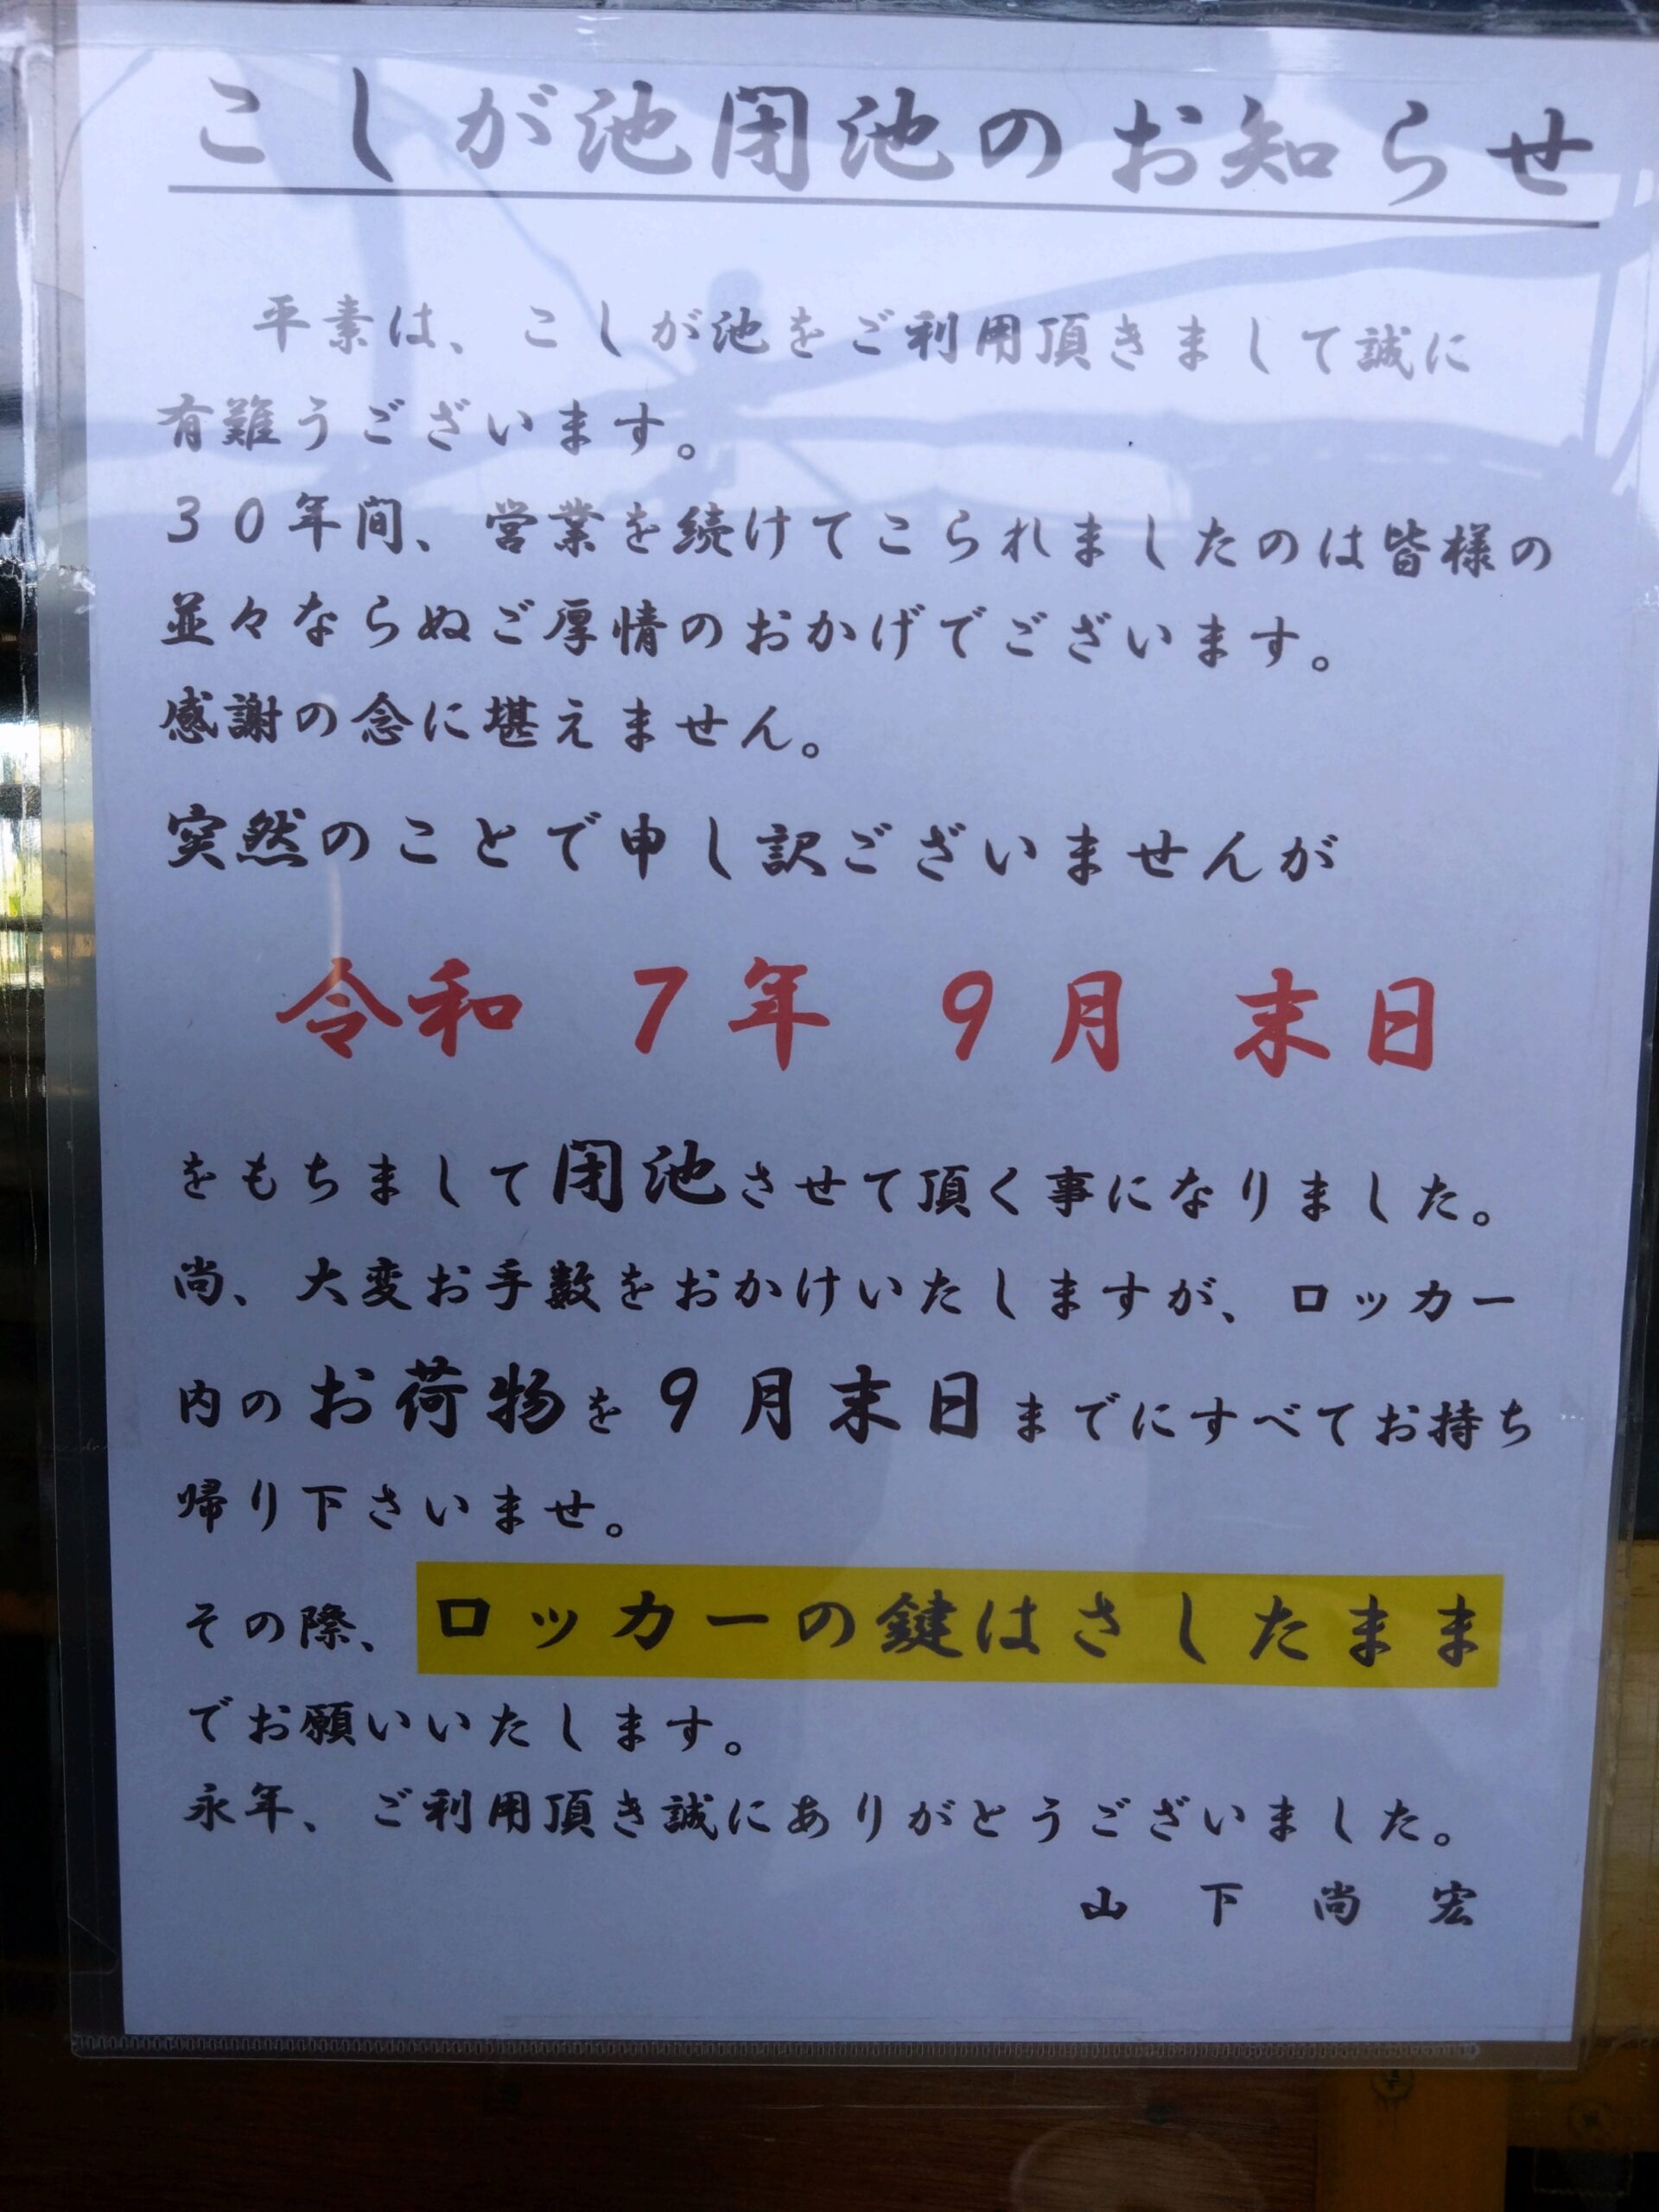 こしが池閉池のお知らせ
平素は、こしが池をご利用頂きまして誠に
有難うございます。
３０年間、営業を続けてこられましたのは皆様の
並々ならぬご厚情のおかげでございます。
感謝の念に堪えません。
突然のことで申し訳ございませんが
令和 7年 9月 末日
をもちまして閉池させて頂く事になりました。
尚、大変お手数をおかけいたしますが、ロッカー
内のお荷物を9月末日までにすべてお持ち
帰り下さいませ。
その際、ロッカーの鍵はさしたまま
でお願いいたします。
永年、ご利用頂き誠にありがとうございました。
山 下 尚 宏